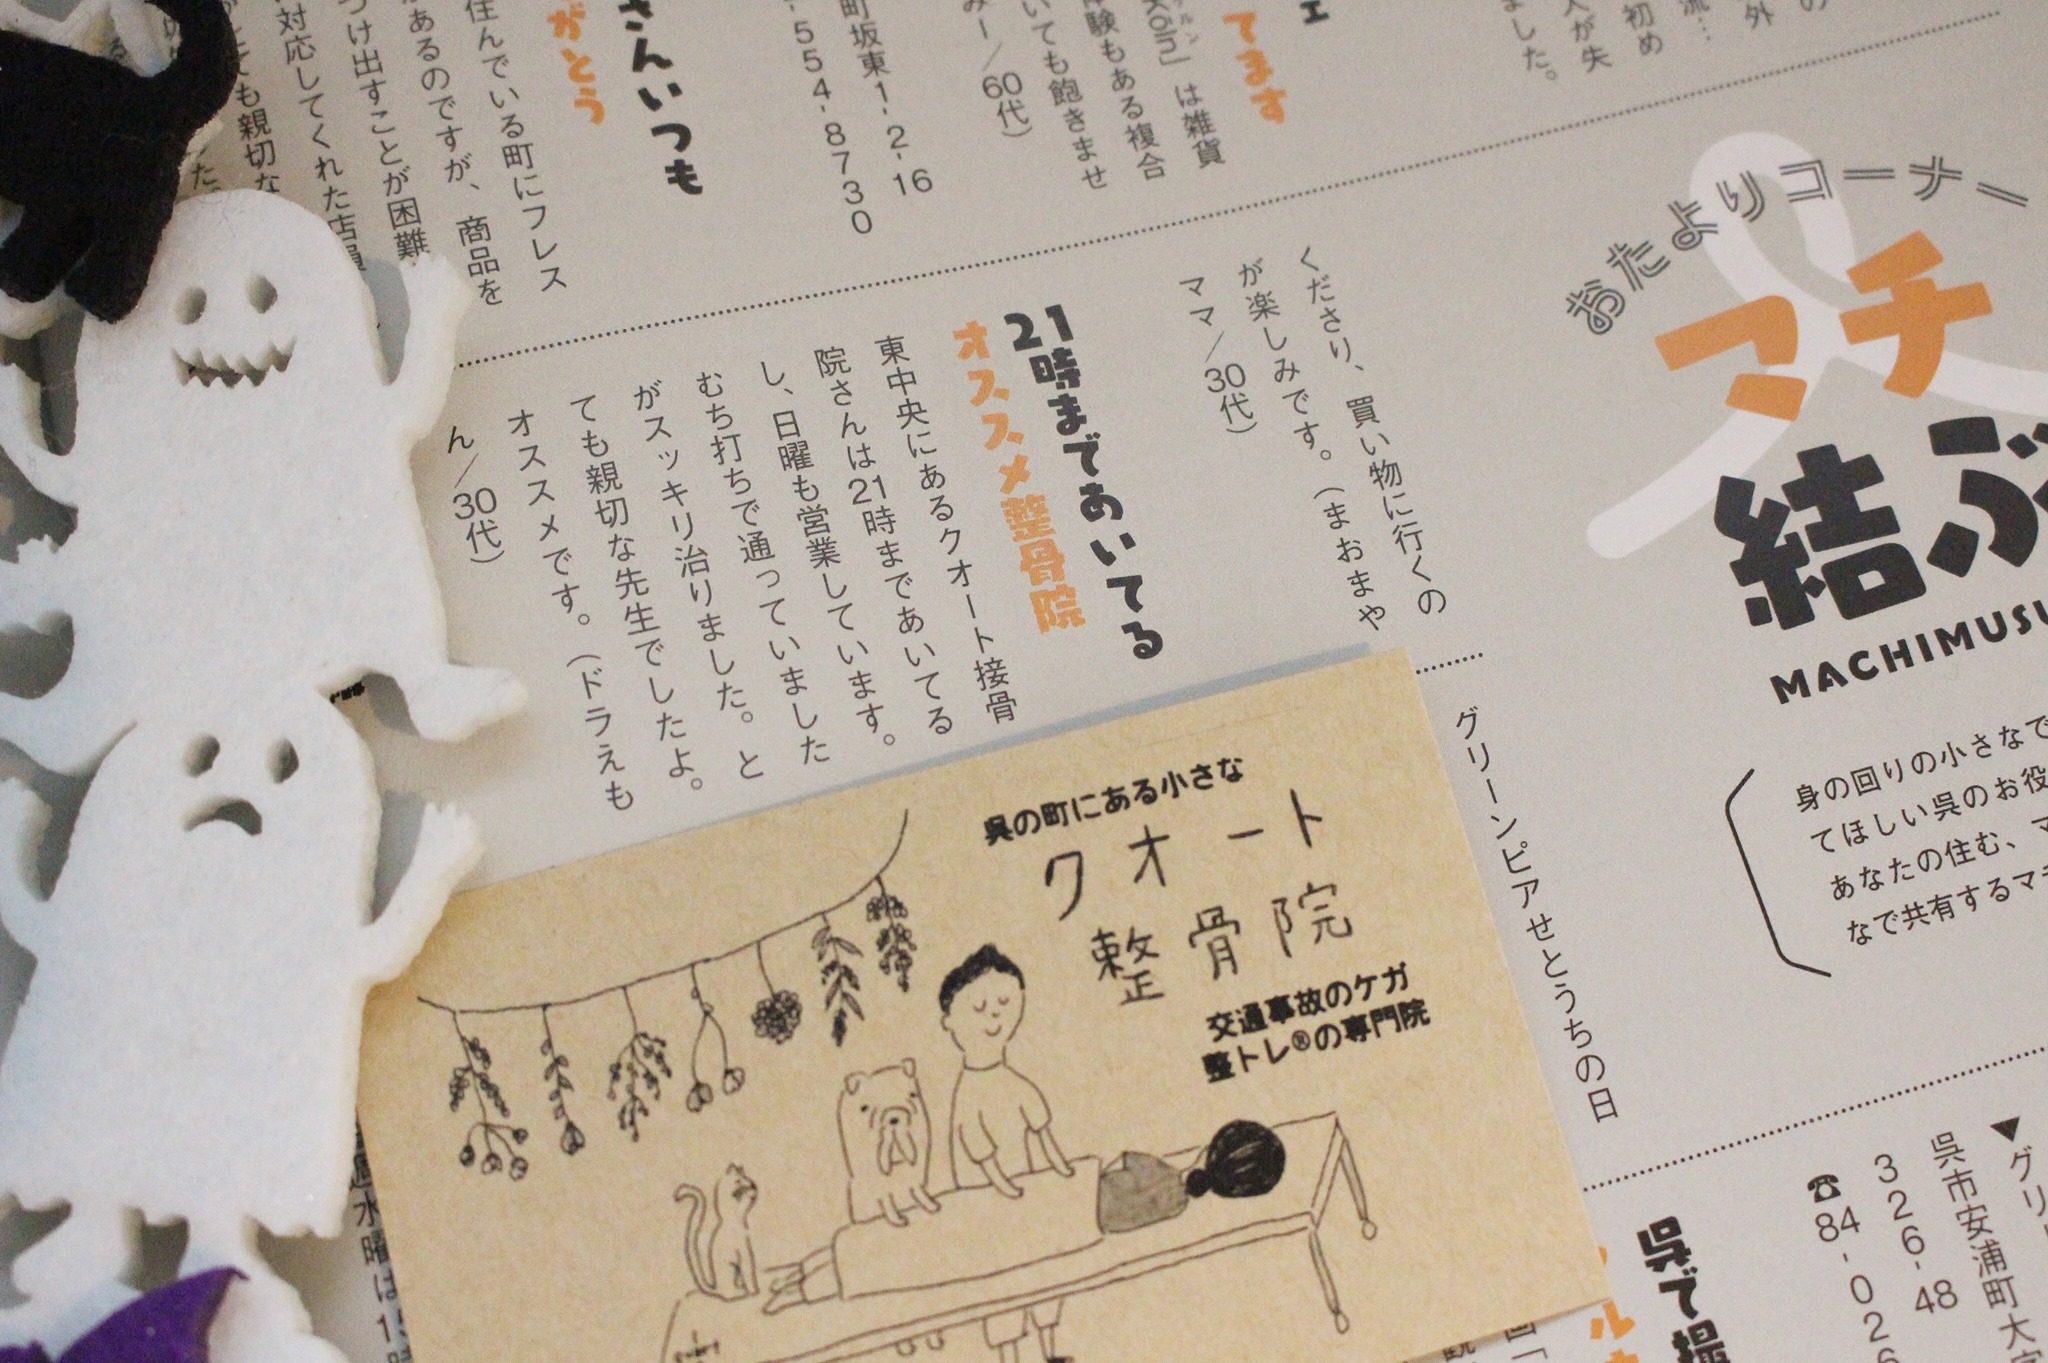 おたよりコーナー
マチ
結ぶ
MACHIMUSU
身の回りの小さなで
てほしい呉のお役
あなたの住む、マ
なで共有するマチ
外
流…
初め
人が失
ました。
てます
は雑貨
験もある複合
いても飽きませ
みー/60代)
町坂東1-2-16
554-8730
さんいつも
がとう
住んでいる町にフレス
があるのですが、商品を
つけ出すことが困難
対応してくれた店員
ても親切な
くださり、買い物に行くの
が楽しみです。(まおまや
ママ/30代)
21時まであいてる
オススメ整骨院
東中央にあるクオート接骨
院さんは21時まであいてる
し、日曜も営業しています。
むち打ちで通っていました
がスッキリ治りました。と
ても親切な先生でしたよ。
オススメです。(ドラえも
ん/30代)
グリーンピアせとうちの日
▼グリ
呉市安浦町大
326-48
☎84-026
呉で撮
水曜は1
呉の町にある小さな
クオート
整骨院
交通事故のケガ
整トレ®の専門院